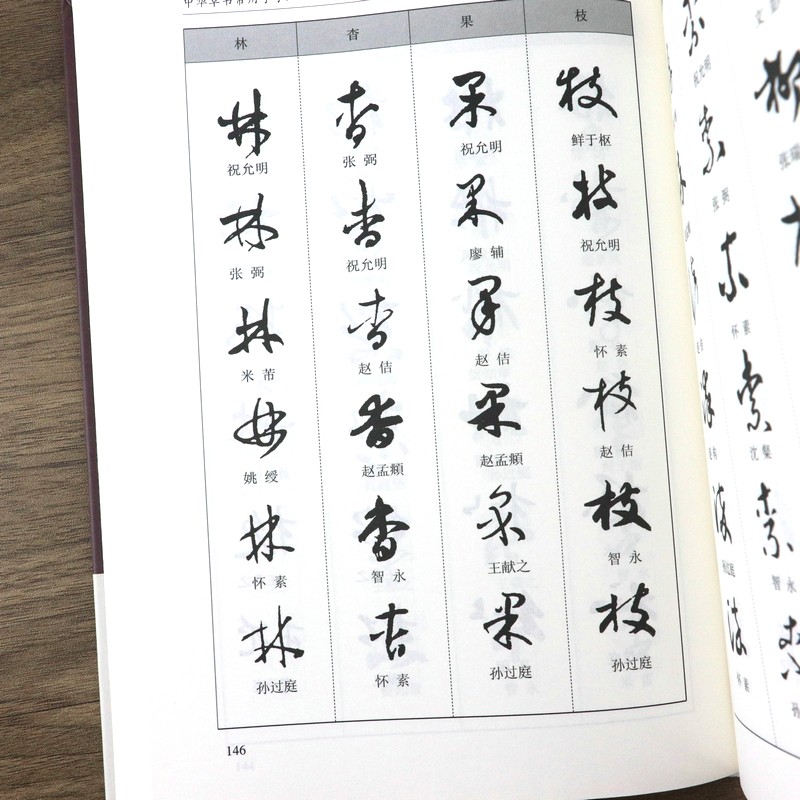 林 杳 果 枝
林 杳 果 枝
祝允明 张弼 祝允明 鲜于枢
林 杳 果 枝
张弼 祝允明 廖辅 祝允明
林 杳 果 枝
米芾 赵佶 赵佶 怀素
林 杳 果 枝
姚绶 赵孟頫 赵孟頫 赵佶
林 杳 果 枝
怀素 智永 王献之 智永
林 杳 果 枝
孙过庭 怀素 孙过庭 孙过庭
146
祝允明
张弼
怀素
沈粲
智永
孙过庭
怀素